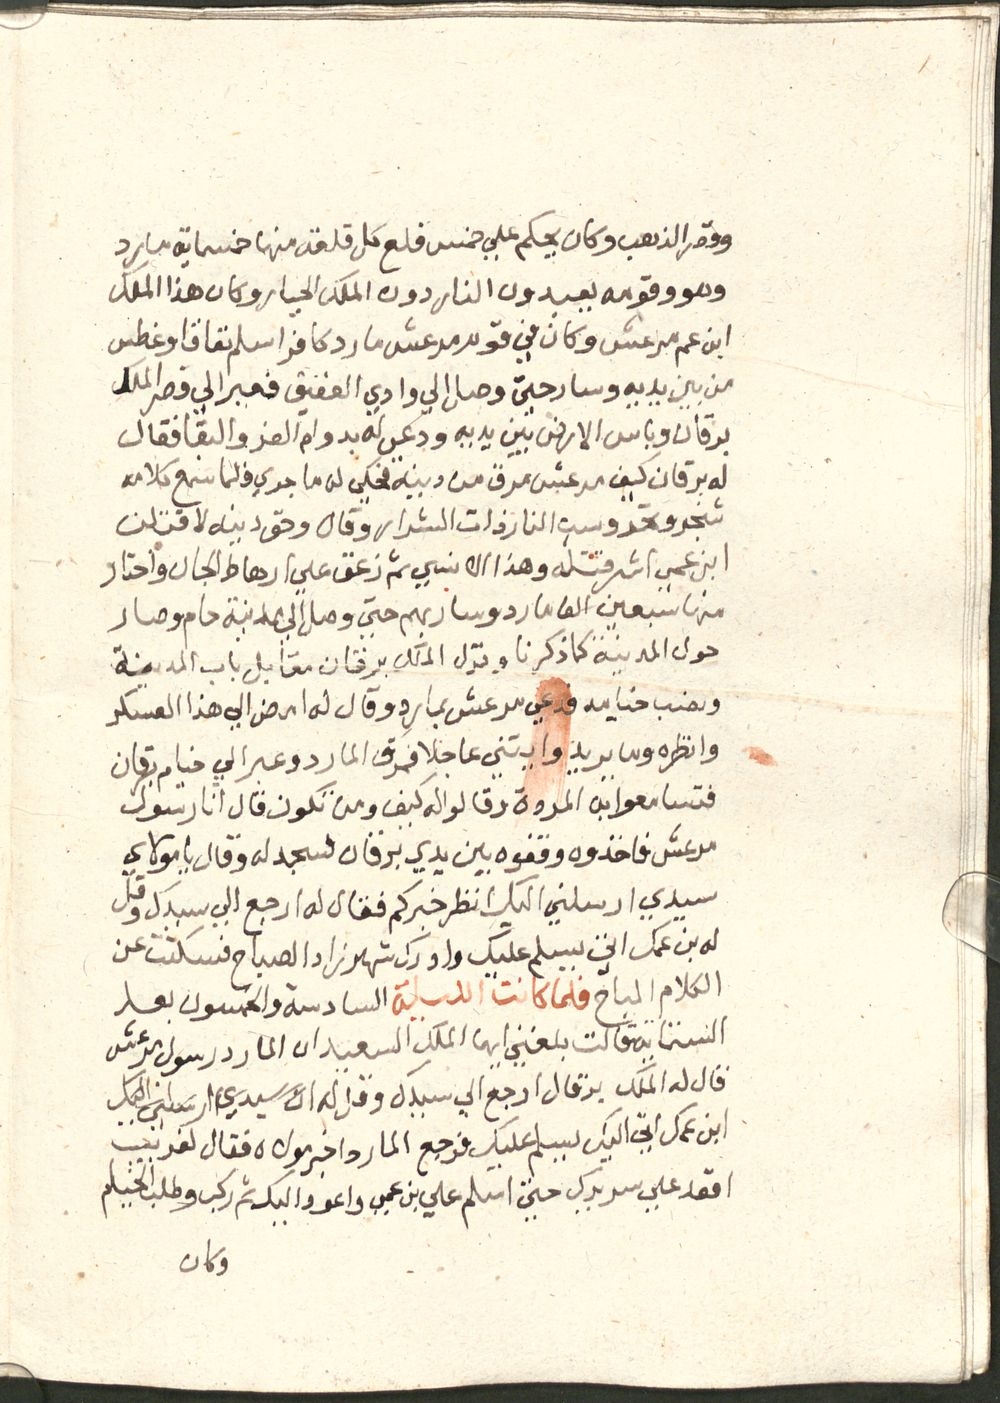 وقصر الذهب وكان يحكم علي خمس قلع كل قلعة منها خمسماية مارد
وهو وقومه يعبدون النار دون الملك الجبار وكان هذا الملك
ابن عم مرعش وكان في قوم مرعش مارد كافر اسلم نفاقا وغطس
من بين يديه وسار حتي وصل الي وادي العقيق فعبر الي قصر الملك
برقان وباس الارض بين يديه ودعي له بدوام العز والبقا فقال
له برقان كيف مرعش مرق من دينه فحكي له ما جري فلما سمع كلامه
شخر ونخر وسب النار ذات الشرار وقال وحق دينه لاقتلن
ابن عمي اشر قتله وهذا الانسي ثم زعق علي ارهاط الجان واختار
منها سبعين الف مارد وسار بهم حتي وصل الي مدينة جام وصار
حول المدينة كما ذكرنا ونزل الملك برقان مقابل باب المدينة
ونصب خيامه فدعي مرعش بمارد وقال له امض الي هذا العسكر
وانظره وما يريد وايتني عاجلا فمرق المارد وعبر الي خيام برقان
فتسامعوا به المردة وقالوا له كيف ومن تكون قال انا رسول
مرعش فاخذوه وقفوه بين يدي برقان فسجد له وقال يا مولاي
سيدي ارسلني اليك انظر خبركم فقال له ارجع الي سيدك وقل
له بن عمك اتي يسلم عليك وادرك شهرزاد الصباح فسكتت عن
الكلام المباح فلما كانت الليلة السادسة والخمسون بعد
الستماية قالت بلغني ايها الملك السعيد ان المارد رسول مرعش
قال له الملك برقان ارجع الي سيدك وقل له ان سيدي ارسلني اليك
ابن عمك اتي اليك يسلم عليك فرجع المارد اخبر مولاه فقال لغريب
اقعد علي سريرك حتي اسلم علي بن عمي واعود اليك ثم ركب وطلب الخيام
وكان